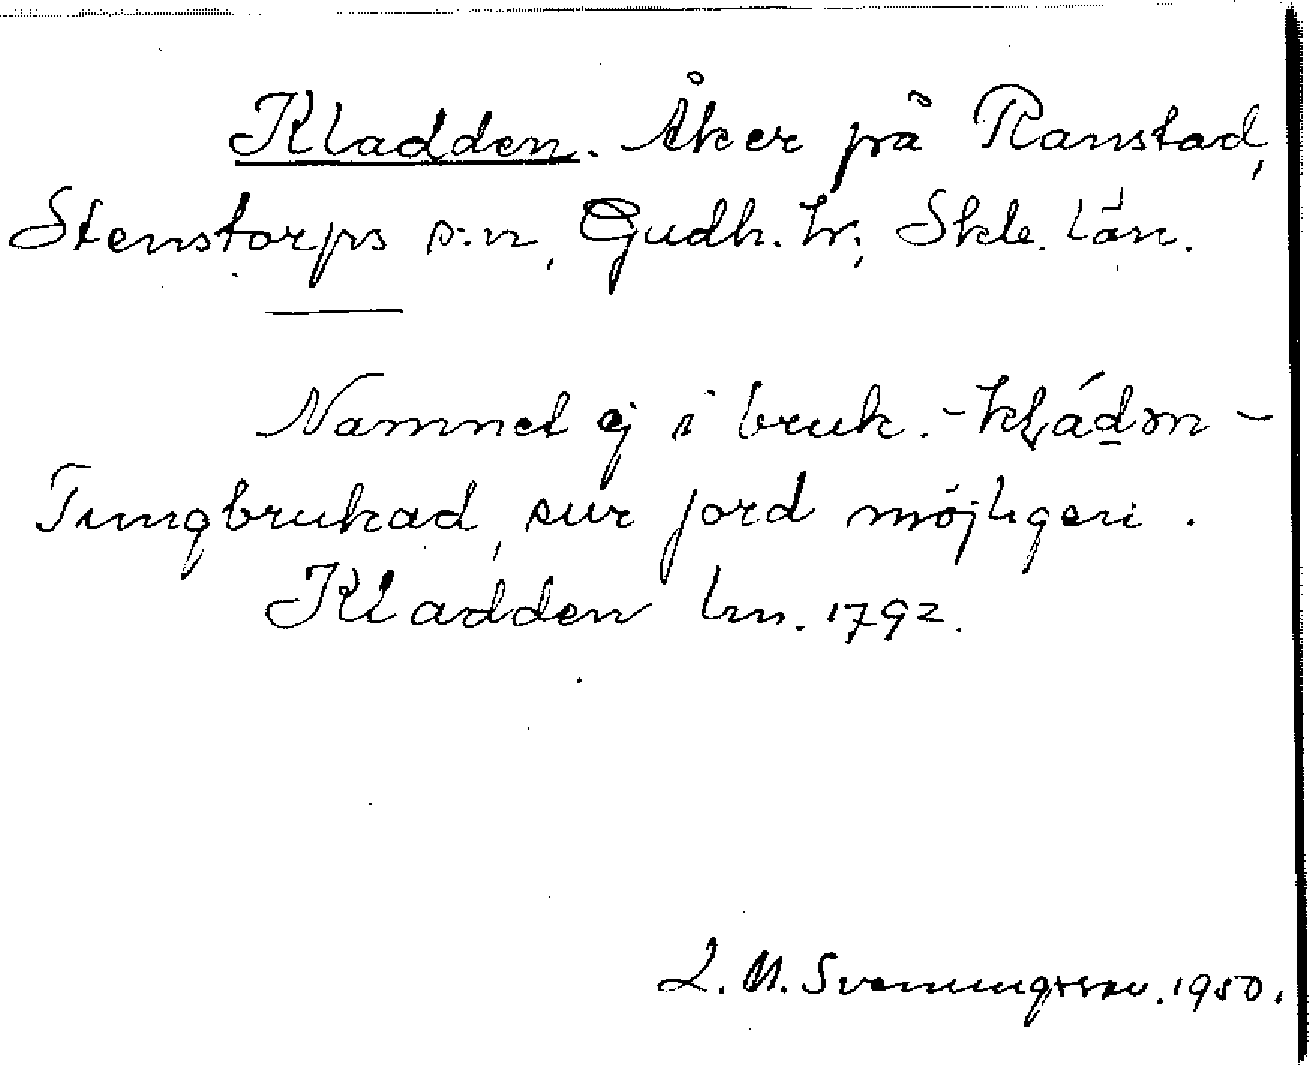 Kladden. Åker på Ranstad,
Stenstorps s:n, Gudh. hr, Skle. län.
Namnet ej i bruk. -
Tungbrukad, sur jord möjligen.
Kladden lm. 1792.
L. M. Svenungsson. 1950.